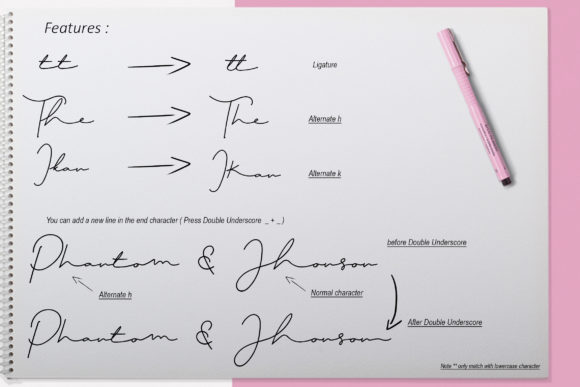 Features :
tt tt Ligature
The The Alternate h
Jkan Jkan Alternate k
You can add a new line in the end character ( Press Double Underscore _ + _ )
Phantom & Jhonson before Double Underscore
Alternate h Normal character
Phantom & Jhonson After Double Underscore
Note ** only match with lowercase character